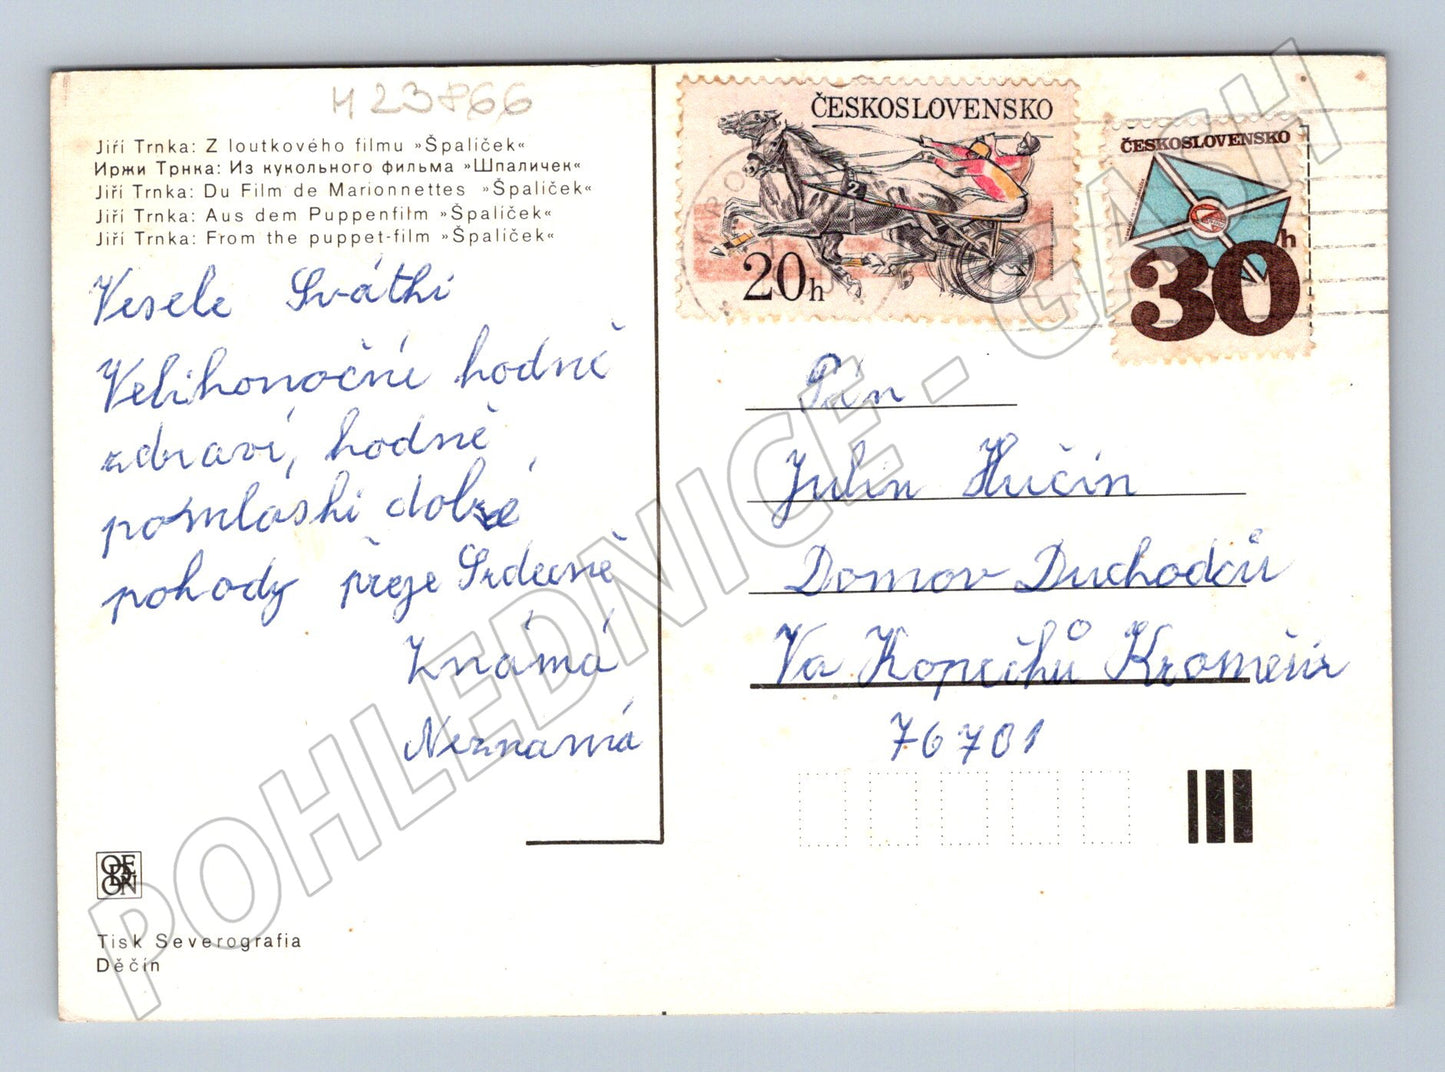 H 23866
Jiří Trnka: Z loutkového filmu »Špalíček«
Иржи Трнка: Из кукольного фильма »Шпаличек«
Jiří Trnka: Du Film de Marionnettes »Špalíček«
Jiří Trnka: Aus dem Puppenfilm »Špalíček«
Jiří Trnka: From the puppet-film »Špalíček«
Vesele Sváthi
Velihonoční hodně
zdraví, hodně
pomlashi dobré
pohody přeje Srdecně
Známá
Neznamá
ODEON
Tisk Severografia
Děčín
ČESKOSLOVENSKO
2
20h
ČESKOSLOVENSKO
30h
Pán
Julin Hučín
Domov Duchodců
Va Kopečhů Kroměříř
76701
POHLEDNICE - CASH